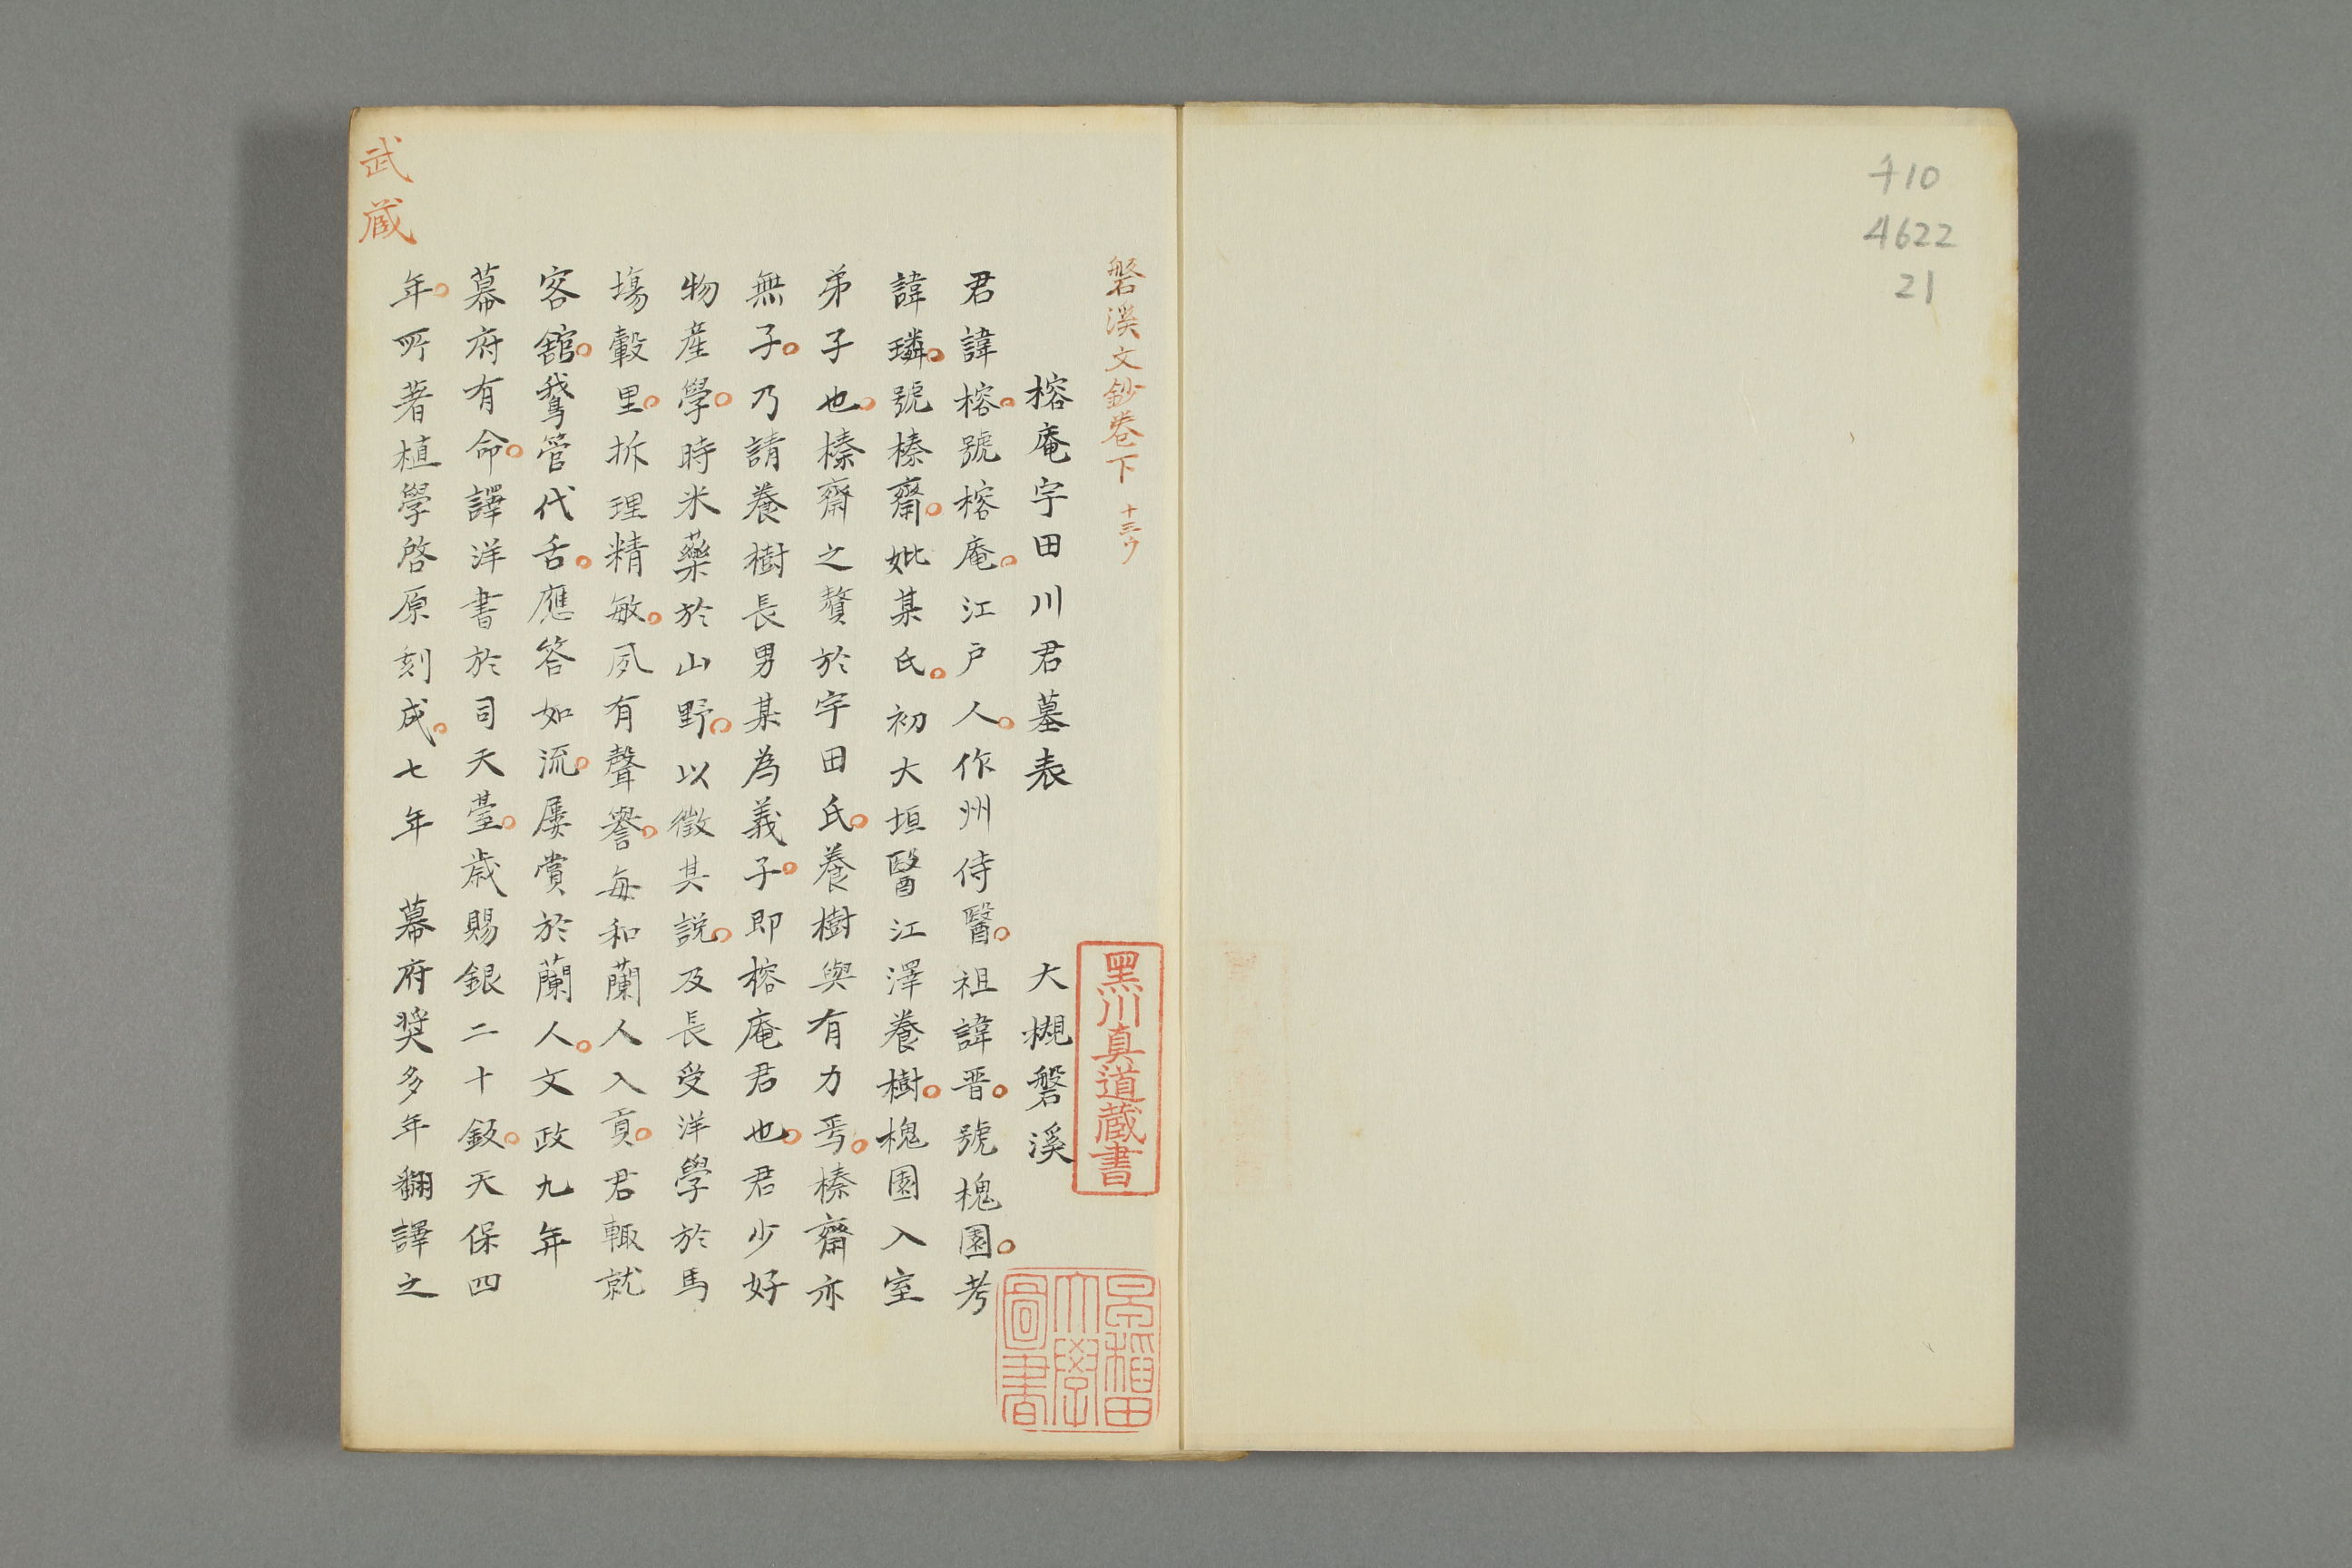 チ10
4622
21
磐溪文鈔卷下 十三ウ
榕庵宇田川君墓表 大槻磐溪
君諱榕。號榕庵。江戸人。作州侍醫。祖諱晋。號槐園。考
諱璘。號榛齋。妣某氏。初大垣醫江澤養樹。槐園入室
弟子也。榛齋之贅於宇田氏。養樹與有力焉。榛齋亦
無子。乃請養樹長男某為義子。即榕庵君也。君少好
物産學。時米藥於山野。以徵其説。及長受洋學於馬
塲轂里。拆理精敏。夙有聲譽。毎和蘭人入貢。君輙就
客舘。鵞管代舌。應答如流。屢賞於蘭人。文政九年
幕府有命。譯洋書於司天臺。歳賜銀二十鈑。天保四
年。所著植學啓原刻成。七年 幕府奨多年翻譯之
武蔵
黒川真道蔵書
早稲田大學圖書